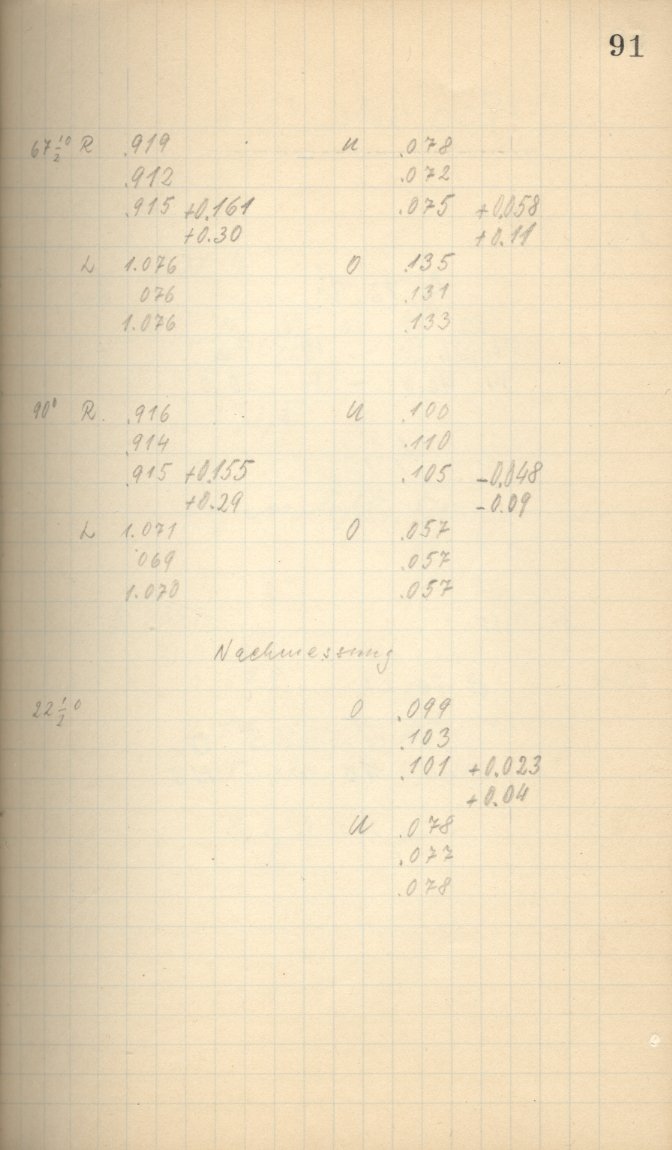 91
67 1/2° R .919 U .078
.912 .072
.915 +0.161 .075 +0.058
+0.30 +0.11
L 1.076 O .135
076 .131
1.076 .133
90° R .916 U .100
.914 .110
.915 +0.155 .105 -0.048
+0.29 -0.09
L 1.071 O .057
069 .057
1.070 .057
Nachmessung
22 1/2° O .099
.103
.101 +0.023
+0.04
U .078
.077
.078